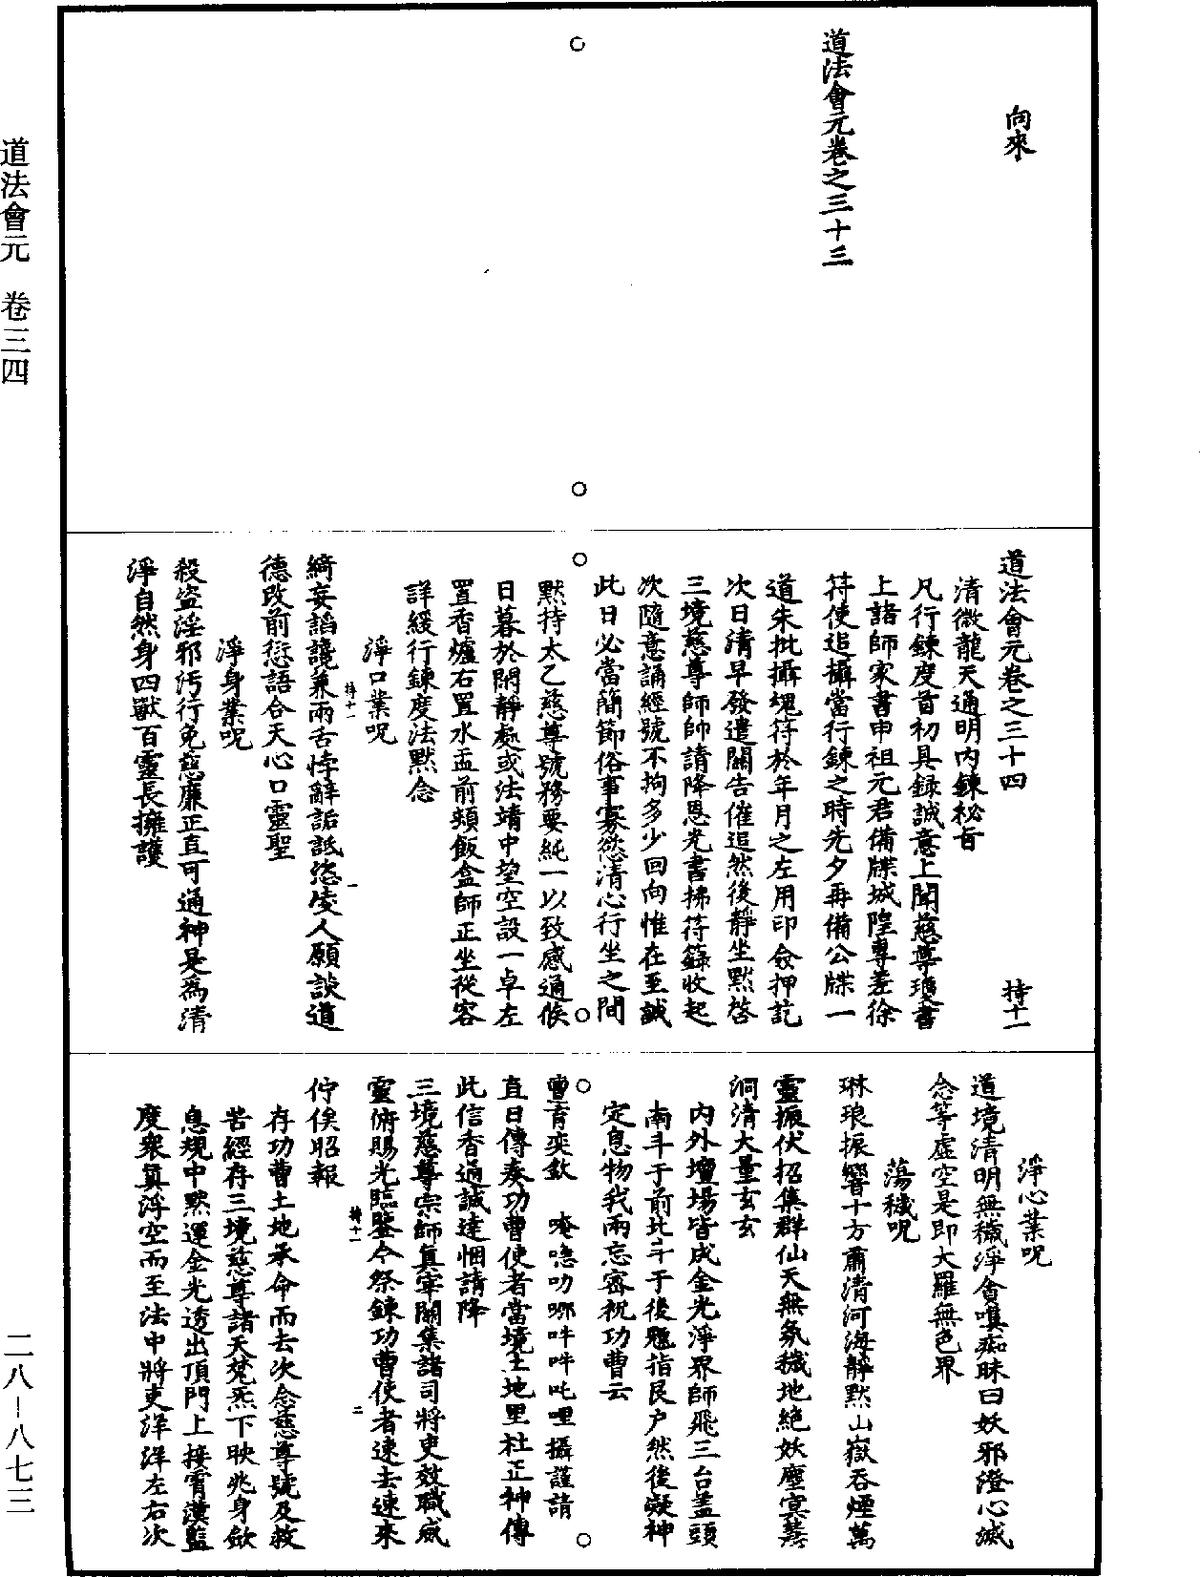 道法會元　卷三四
向來
道法會元卷之三十三
道法會元卷之三十四　持十一
清微龍天通明內鍊秘旨
凡行鍊度首初具錄誠意上聞慈尊瓊書
上諸師家書申祖元君備牒城隍專差徐
符使追攝當行鍊之時先夕再備公牒一
道朱批攝魂符於年月之左用印僉押訖
次日清早發遣關告催追然後靜坐默啓
三境慈尊師帥請降恩光書拂符籙收起
次隨意誦經號不拘多少回向惟在至誠
此日必當簡節俗事寡慾清心行坐之間
默持太乙慈尊號務要純一以致感通俟
日暮於閑靜處或法靖中望空設一卓左
置香爐右置水盂前頰飯盒師正坐從容
詳緩行鍊度法默念
淨口業呪
綺妄諂譏兼兩舌悖辭詬詆恣凌人願談道
德改前愆語合天心口靈聖
淨身業呪
殺盜淫邪污行免慈廉正直可通神是為清
淨自然身四獸百靈長擁護
持十一
一
淨心業呪
道境清明無穢淨會嗔痴昧曰妖邪澄心滅
念等虛空是即大羅無色界
蕩穢呪
琳琅振響十方肅清河海靜默山嶽吞煙萬
靈振伏招集群仙天無氛穢地絕妖塵冥慧
洞清大量玄玄
內外壇場皆成金光淨界師飛三台蓋頭
南斗于前北斗于後魁指艮户然後凝神
定息物我兩忘密祝功曹云
曹育奕歘　唵𠺁叻哪吽吽吒哩攝謹請
直日傳奏功曹使者當境土地里社正神傳
此信香通誠達悃請降
三境慈尊宗師真宰關集諸司將吏效職威
靈俯賜光臨鑒今祭鍊功曹使者速去速來
佇俟昭報
存功曹土地承命而去次念慈尊號及救
苦經存三境慈尊諸天梵炁下映兆身歛
息規中默運金光透出頂門上接霄漢監
度衆真浮空而至法中將吏洋洋左右次
持十一
二
二八—八七三